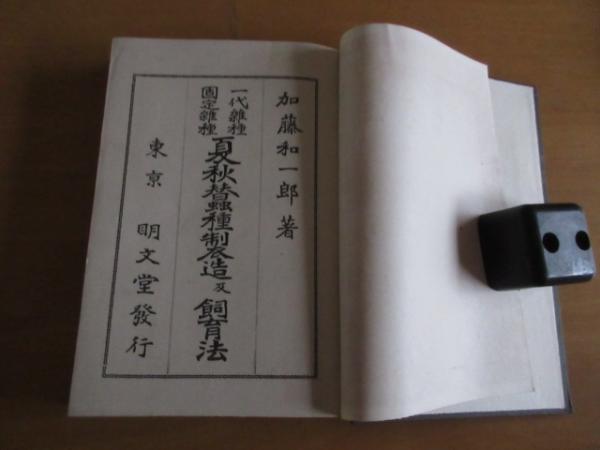 加藤和一郎著
一代雜種
固定雜種
夏秋蠶種製造及飼育法
東京 明文堂發行